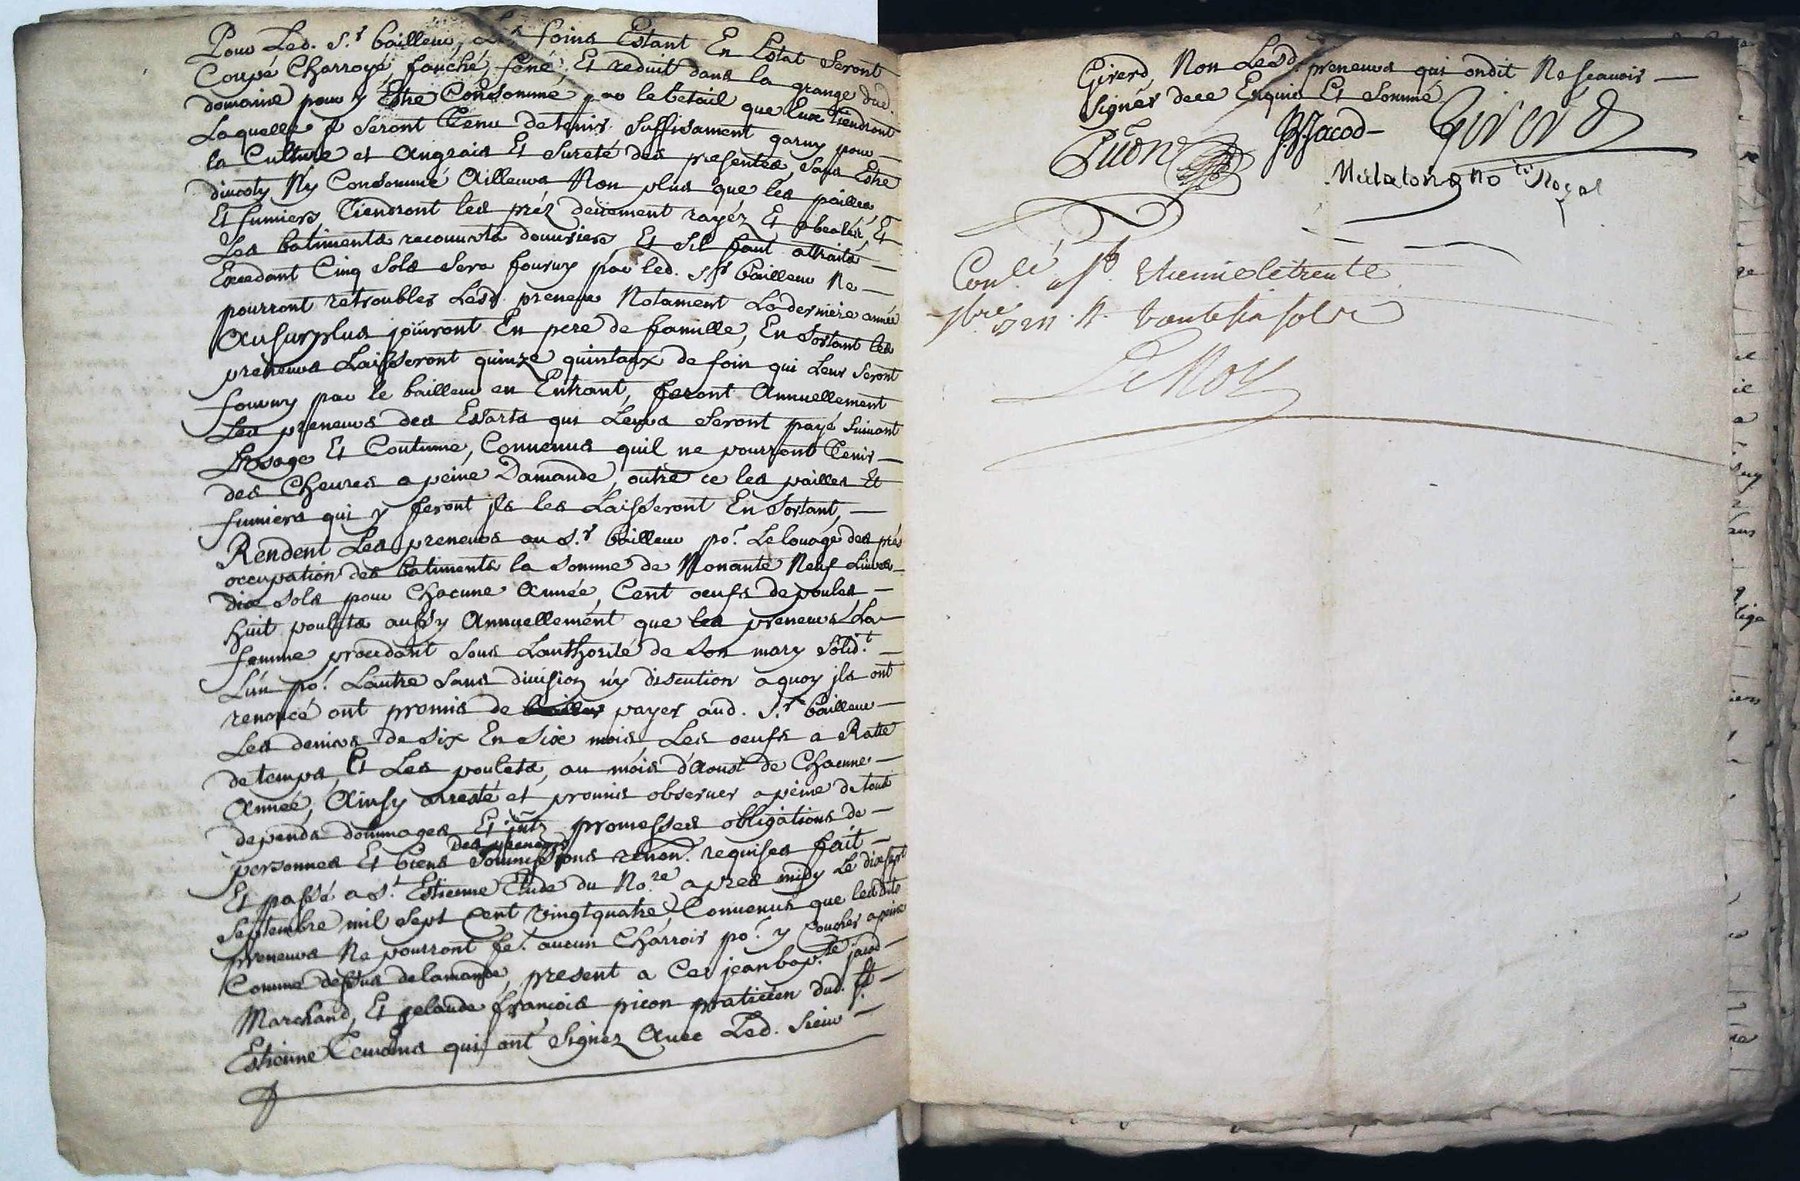 Pour Led. S.r bailleur, Les foins Estant En Estat Seront
Coupé Charroyé fauché fené Et reduit dans la grange dud.
domaine pour y Estre Consommé par le betail que Eux tiendront
Laquelle Seront Tenu detenir Suffisament garny pour
la Culture et Angrais Et Sureté des presentes, Sans Estre
Ny Consommé Ailleurs Non plus que les pailles
Et fumiers, Tiendront les préz deüement rayéz Et Et
Les batiments recouverts Et Sil faut
Excedant Cinq Sols Sera fourny par led. Sr bailleur Ne
pourront retroubles Lesd. preneur Notament Laderniere année
Ausurplus joüiront En pere de famille, En Sortant les
preneurs Laisseront quinze quintaux de foin qui Leur Seront
fourny par le bailleur en Entrant, feront Annuellement
Les preneurs des Essarts qui Leurs Seront payé Suivant
Lusage Et Coutume, Convenus quil ne pourront Tenir
des Cheures a peine Damande, outre ce les pailles Et
fumiers qui y feront ils les Laisseront En Sortant,
Rendent Les preneurs au S.r bailleur po.r Le loüage des prés
occupation des batiments la Somme de Nonante Neuf Liures
dix Sols pour Chacune Année, Cent oeufs de poules
huit poulets aussy Annuellement que les preneurs La
femme procedant Sous Lauthorité de Son mary Solid.t
Lún po.r Lautre Sans diuision n'y discution aquoy ils ont
renoncé ont promis de payer aud. S.r bailleur
Les deniers de Six En Six mois, Les oeufs a Ratte
de temps, Et Les poulets, au mois d'Aoust de Chacune
Année, Ainsy arresté et promis observer apeine de tous
depends dommages Et promesses obligations de
des preneurs
personnes Et biens Soumissions renon.' requises fait
Et passé a S.t Estienne Etude du No.re apres midy Le dixsept
Septembre mil Sept Cent Vingtquatre, Convenus que lesdits
preneurs Ne pourront fe.' aucun Charrois po.r y Coucher apeine
Comme dessus delamande, present a Ces jean bap.te jacod
Marchand, Et gelaude françois picon praticien dud. St
Estienne Temoins qui ont Signez Auec Led. Sieur
Girerd, Non Lesd. preneurs qui ondit Ne Scavoir
Signer dece Enquis Et Sommé
Picon JBJacod Girerd
no.re Royal
Con.lé a St Etienne le trente
7bre 1724. R. 
LeRoy